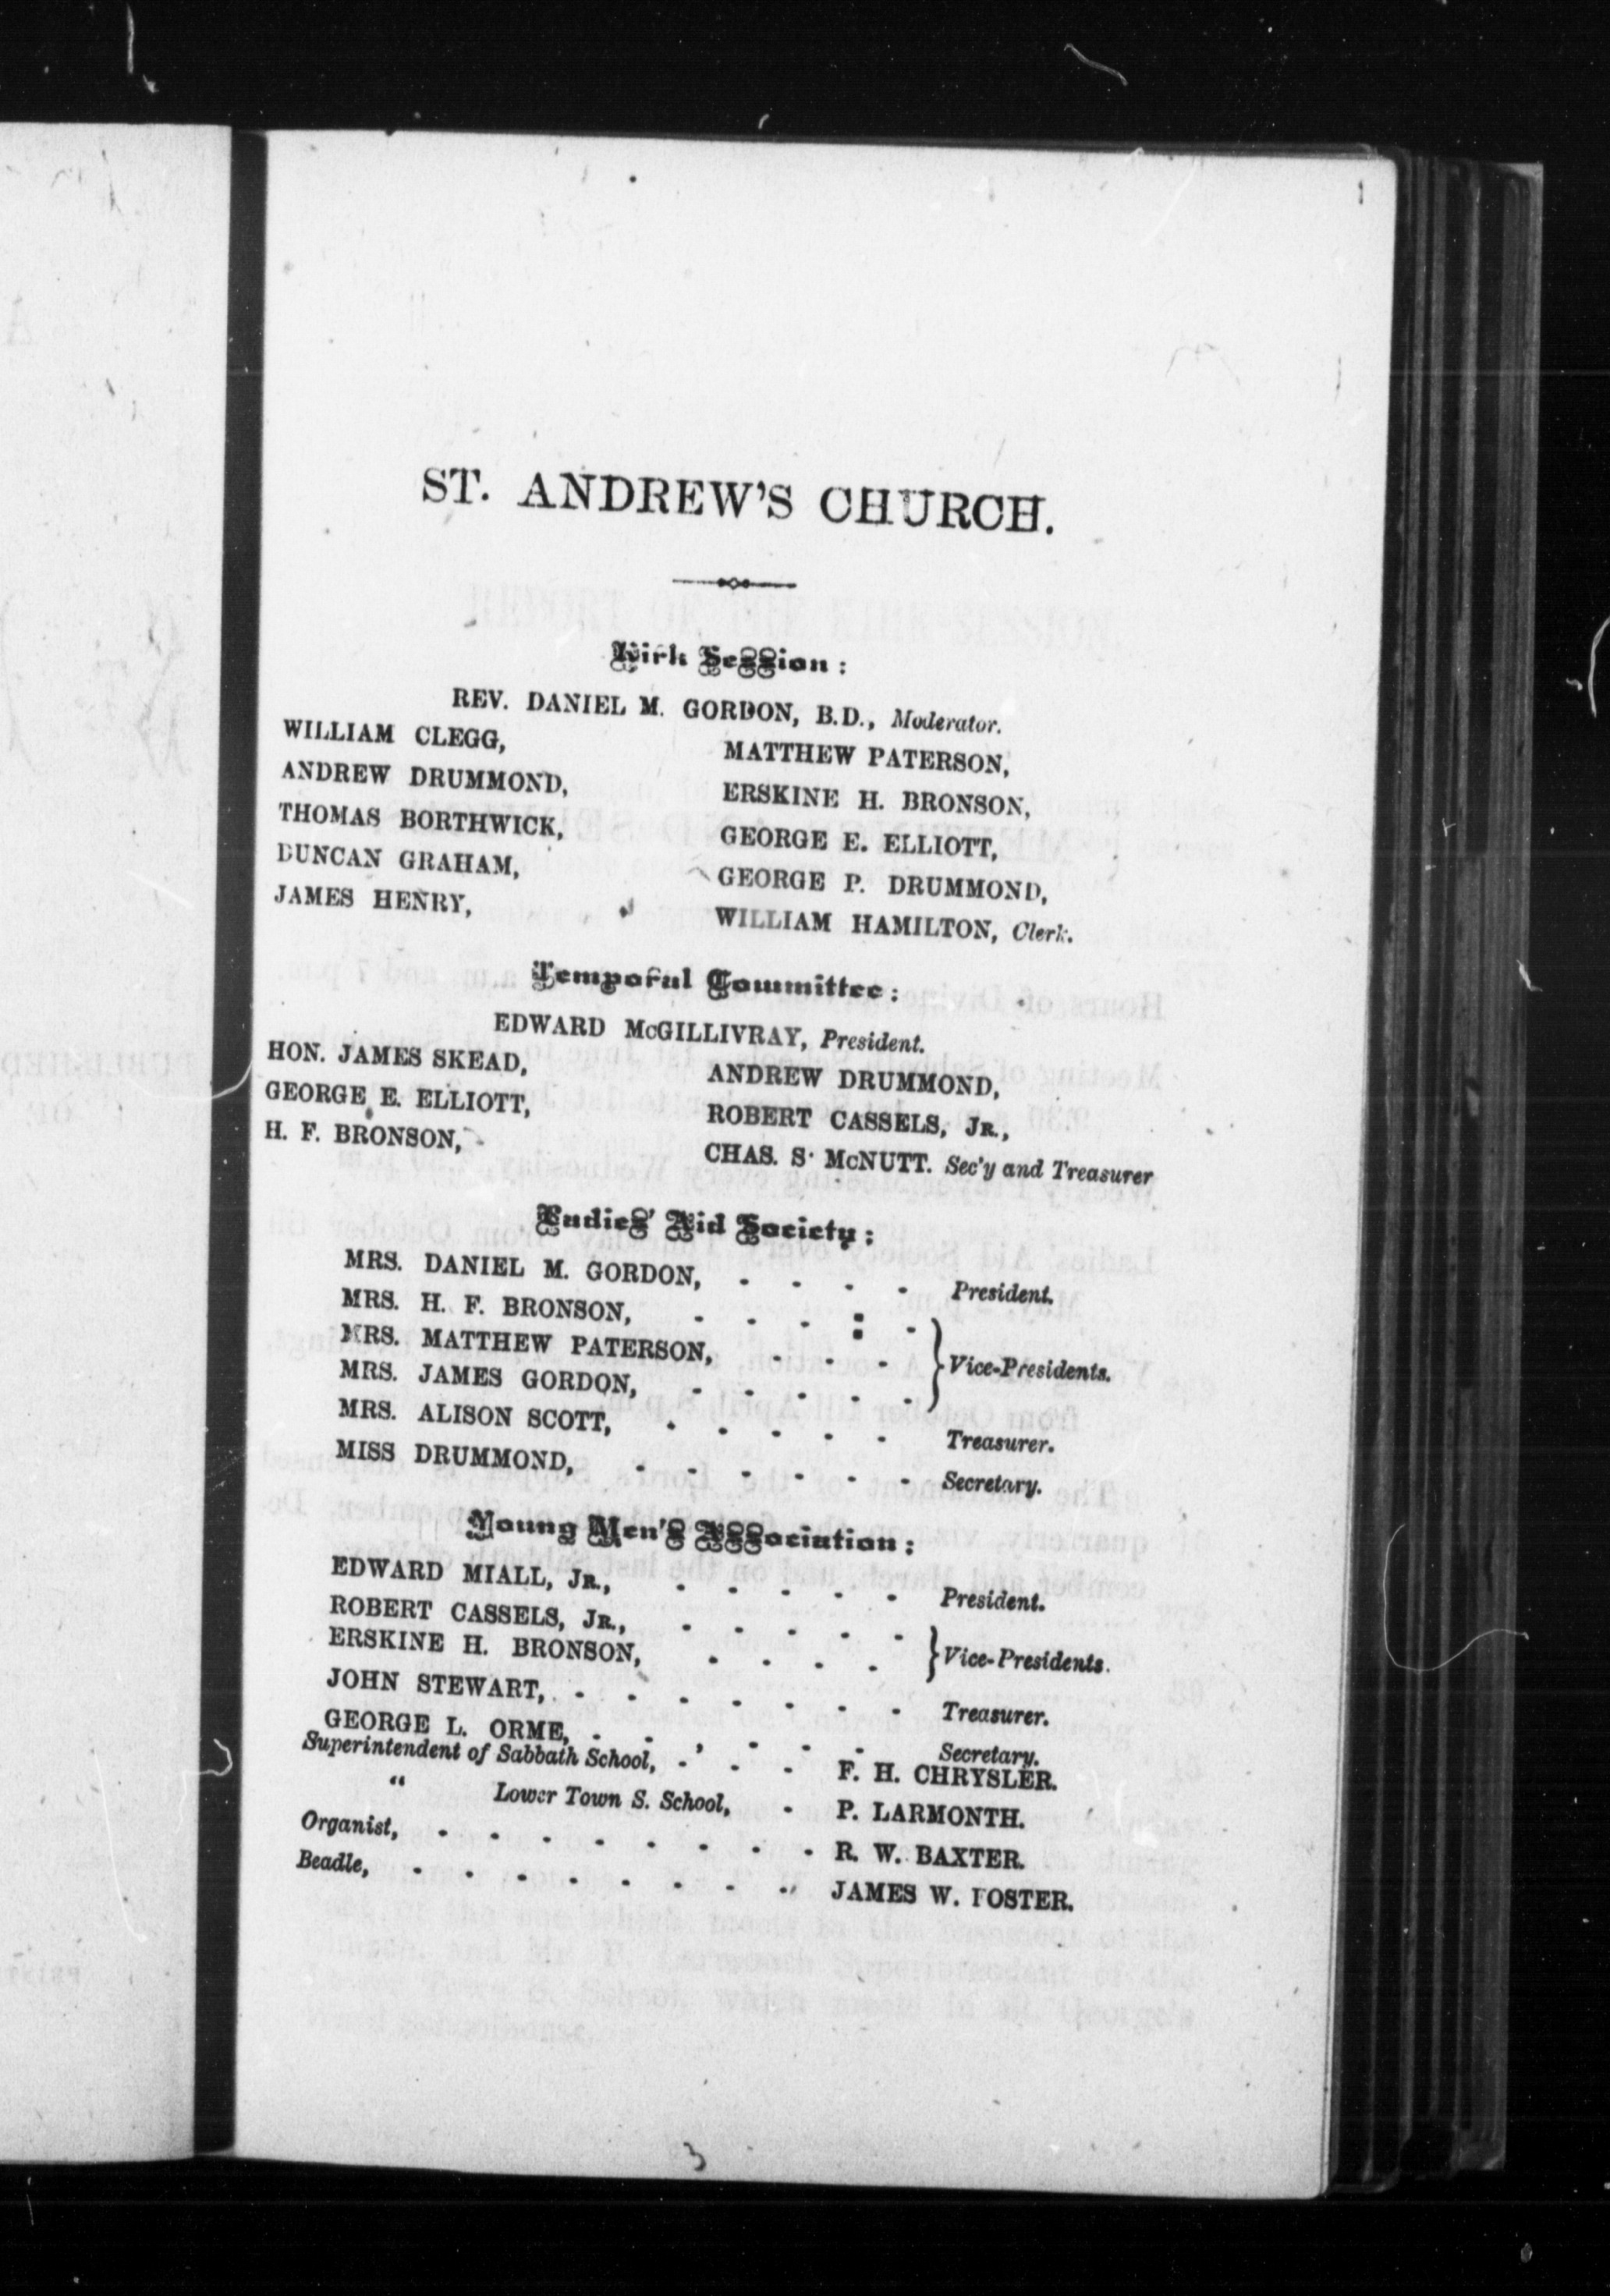 ST. ANDREW'S CHURCH.
Kirk Session:
REV. DANIEL M. GORDON, B.D., Moderator.
WILLIAM CLEGG, MATTHEW PATERSON,
ANDREW DRUMMOND, ERSKINE H. BRONSON,
THOMAS BORTHWICK, GEORGE E. ELLIOTT,
DUNCAN GRAHAM, GEORGE P. DRUMMOND,
JAMES HENRY, WILLIAM HAMILTON, Clerk.
Temporal Committee:
EDWARD McGILLIVRAY, President.
HON. JAMES SKEAD, ANDREW DRUMMOND,
GEORGE E. ELLIOTT, ROBERT CASSELS, JR.,
H. F. BRONSON, CHAS. S. McNUTT. Sec'y and Treasurer
Ladies' Aid Society:
MRS. DANIEL M. GORDON, - - - - President.
MRS. H. F. BRONSON, - - - - -
MRS. MATTHEW PATERSON, - - - } Vice-Presidents.
MRS. JAMES GORDON, - - - - -
MRS. ALISON SCOTT, - - - - - Treasurer.
MISS DRUMMOND, - - - - - - Secretary.
Young Men's Association:
EDWARD MIALL, JR., - - - - - President.
ROBERT CASSELS, JR., - - - - -
ERSKINE H. BRONSON, - - - - } Vice-Presidents.
JOHN STEWART, - - - - - - - Treasurer.
GEORGE L. ORME, - - - - - - Secretary.
Superintendent of Sabbath School, - - - F. H. CHRYSLER.
" Lower Town S. School, - P. LARMONTH.
Organist, - - - - - - - - R. W. BAXTER.
Beadle, - - - - - - - - JAMES W. FOSTER.
3